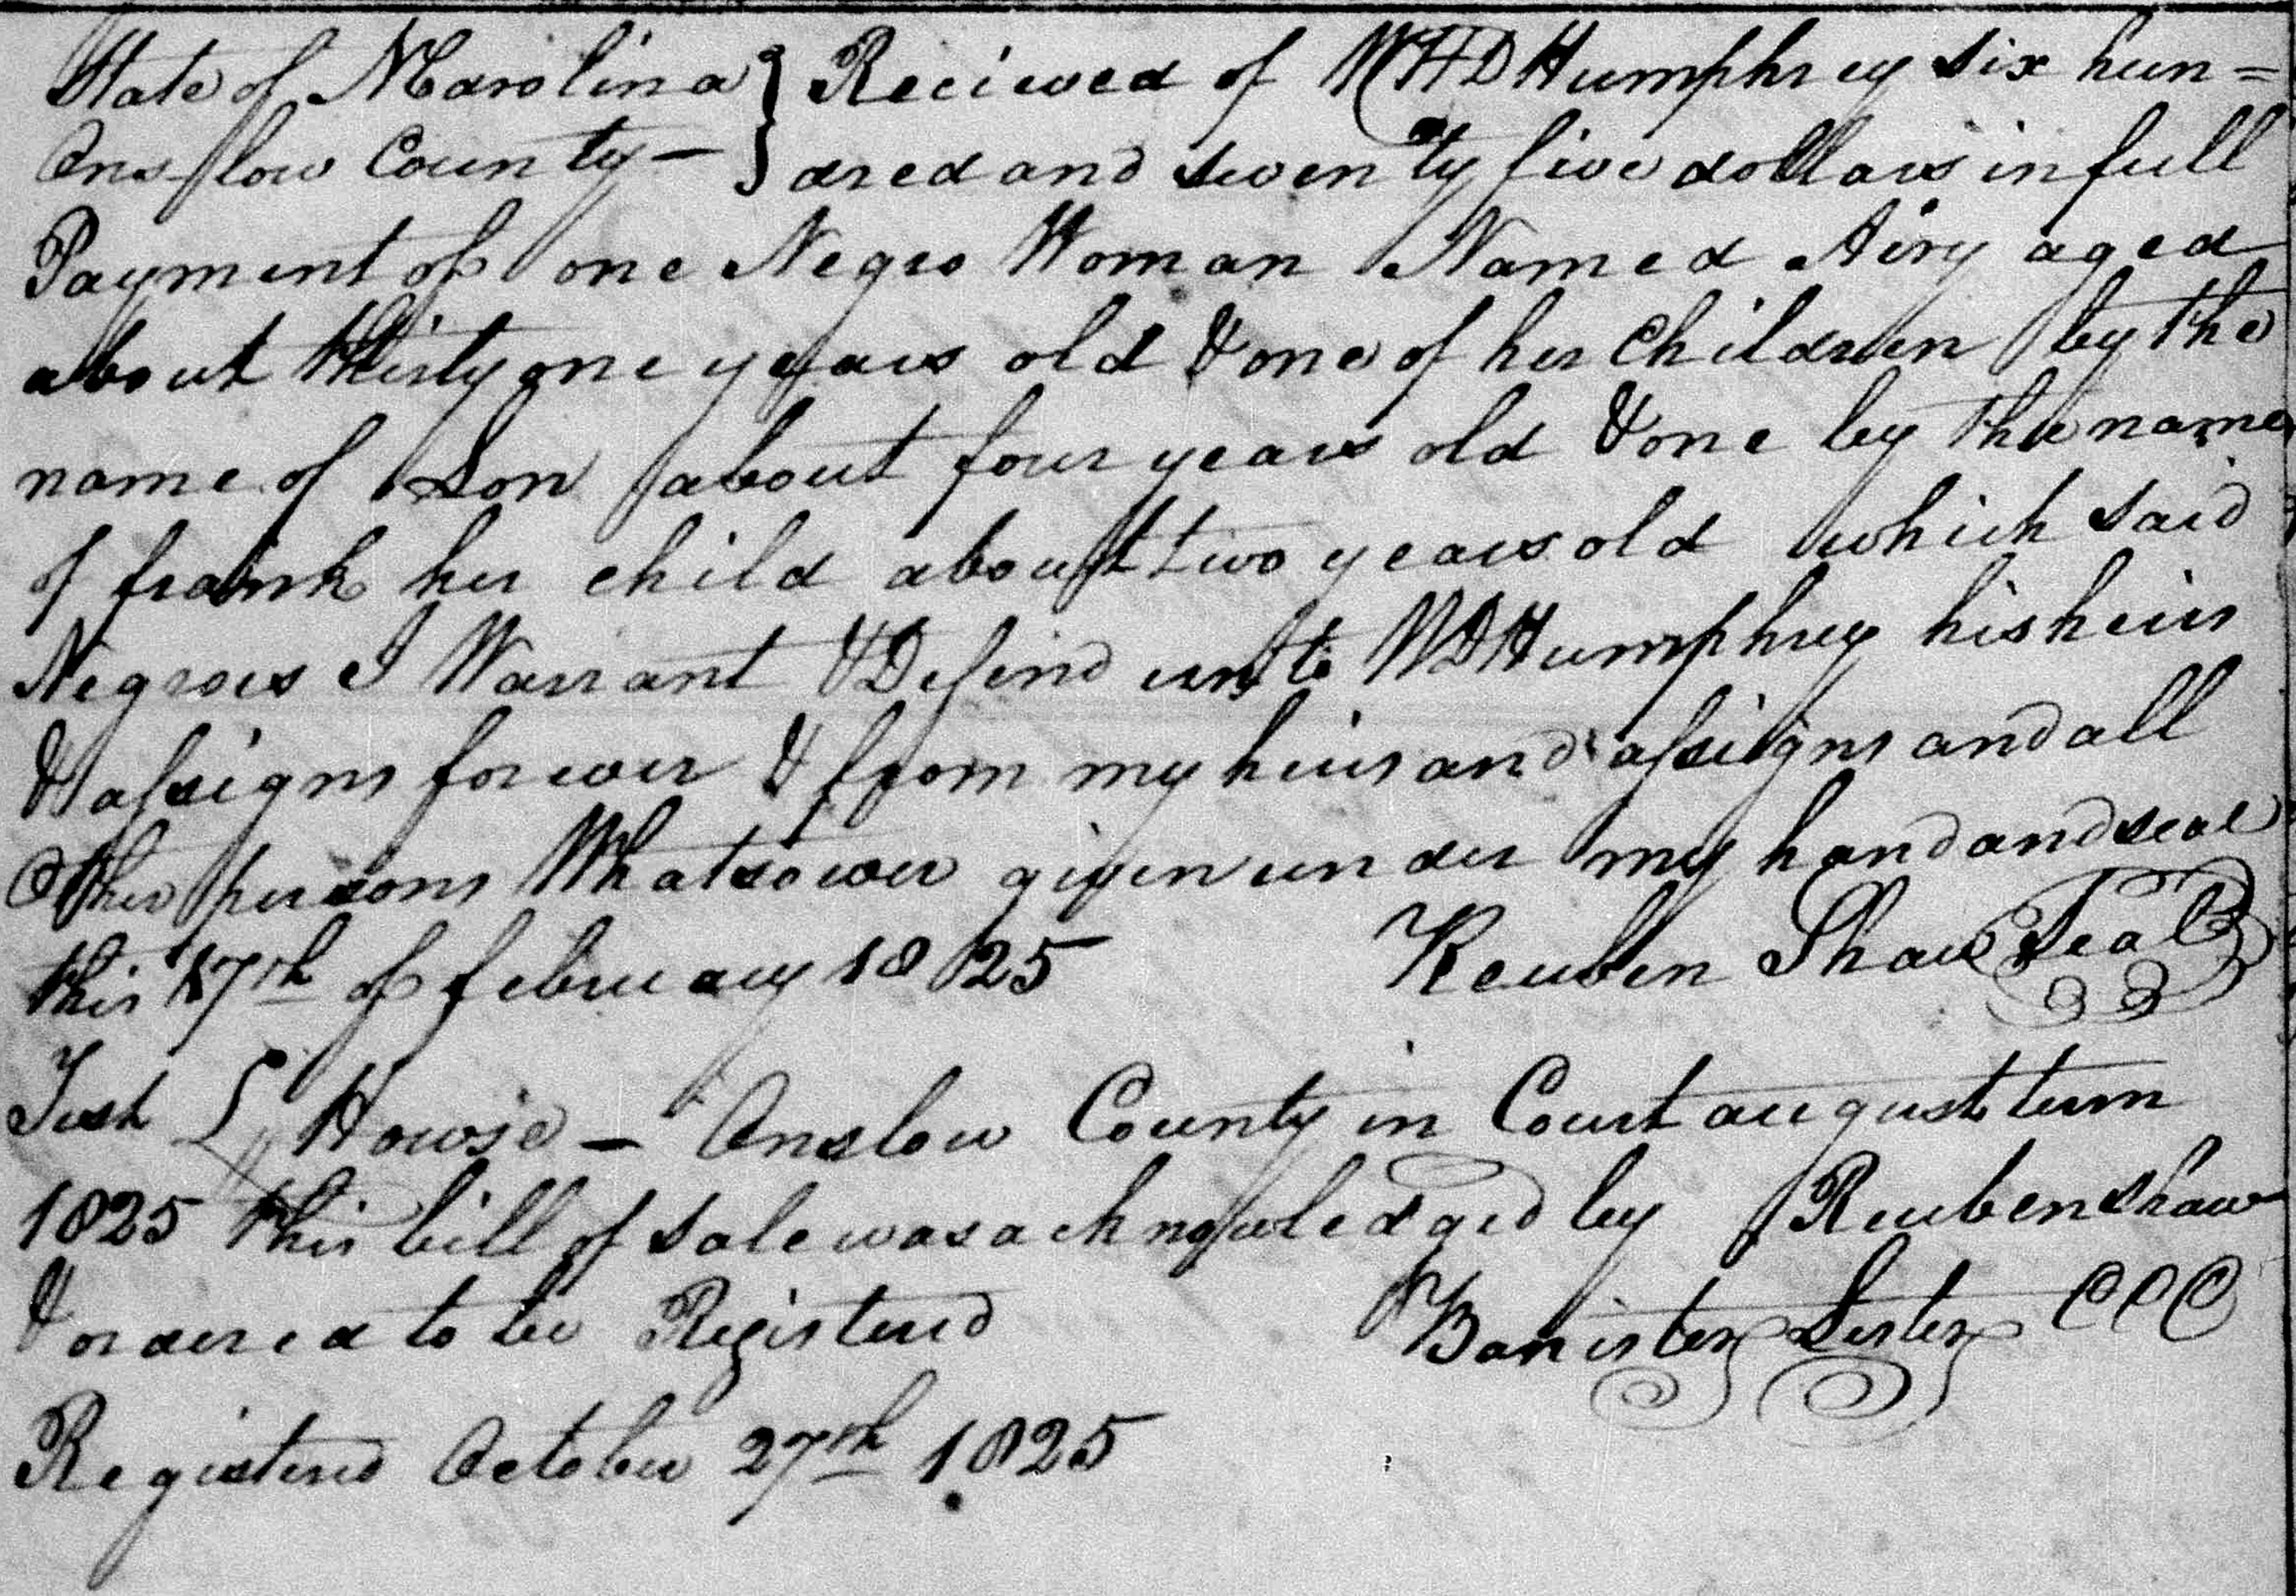 State of N Carolina } Recieved of W H D Humphrey six hun=
Onslow County — } dred and seventy five dollars in full
Payment of one Negro Woman Named Airy aged
about thirty one years old & one of her Children by the
name of Don about four years old & one by the name
of frank her child about two years old which said
Negroes I Warrant & Defend unto W D Humphrey his heirs
& assigns for ever & from my heirs and assigns and all
Other persons Whatsoever given under my hand and seal
this 17th of february 1825 Reuben Shaw Seal
Test L Howse — Onslow County in Court august term
1825 this bill of sale was acknowledged by Reuben Shaw
& ordered to be Registered Banister Lester CCC
Registered October 27th 1825